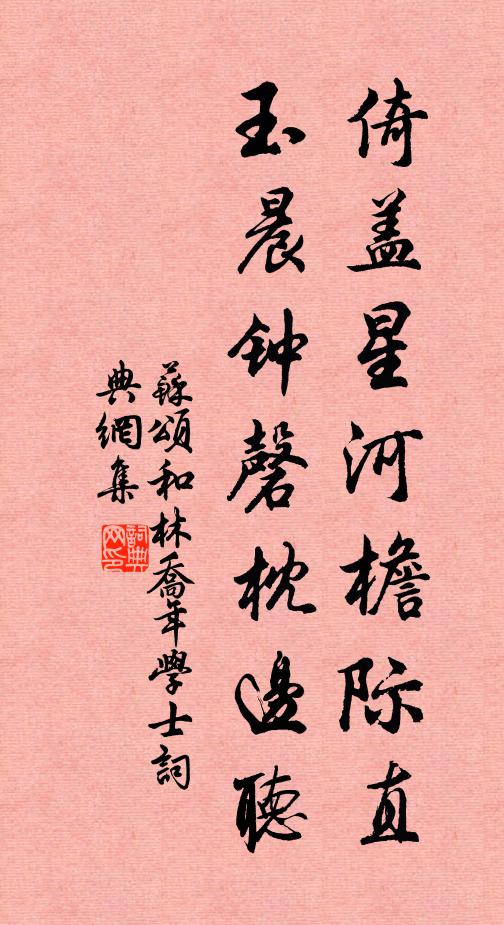 倚盖星河檐际直
玉晨钟磬枕邊聽
蘇頌和林喬年學士詞
典網集
詞典
网印